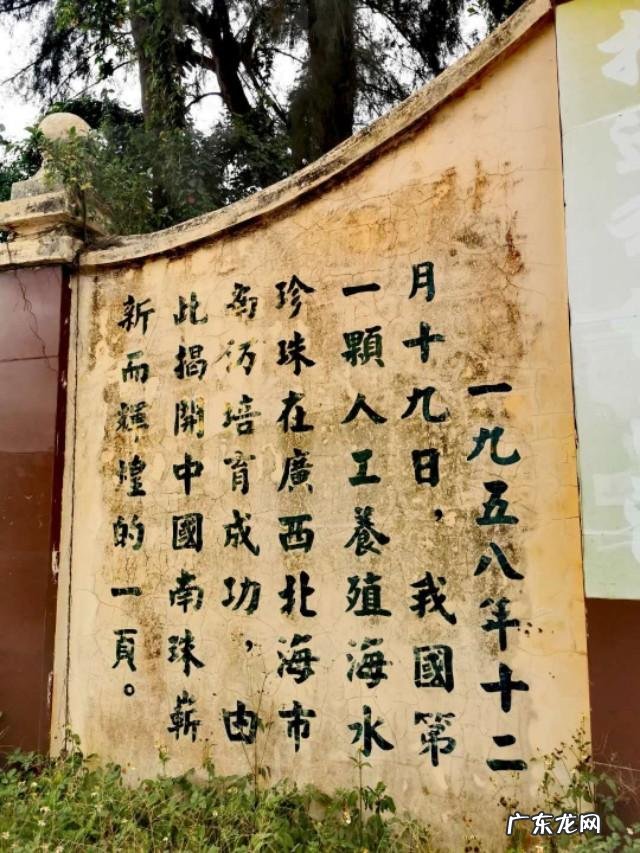 一九五八年十二
月十九日，我國第
一顆人工養殖海水
珍珠在廣西北海市
南培育成功，由
此揭開中國南珠嶄
新而輝煌的一頁。
广东龙网